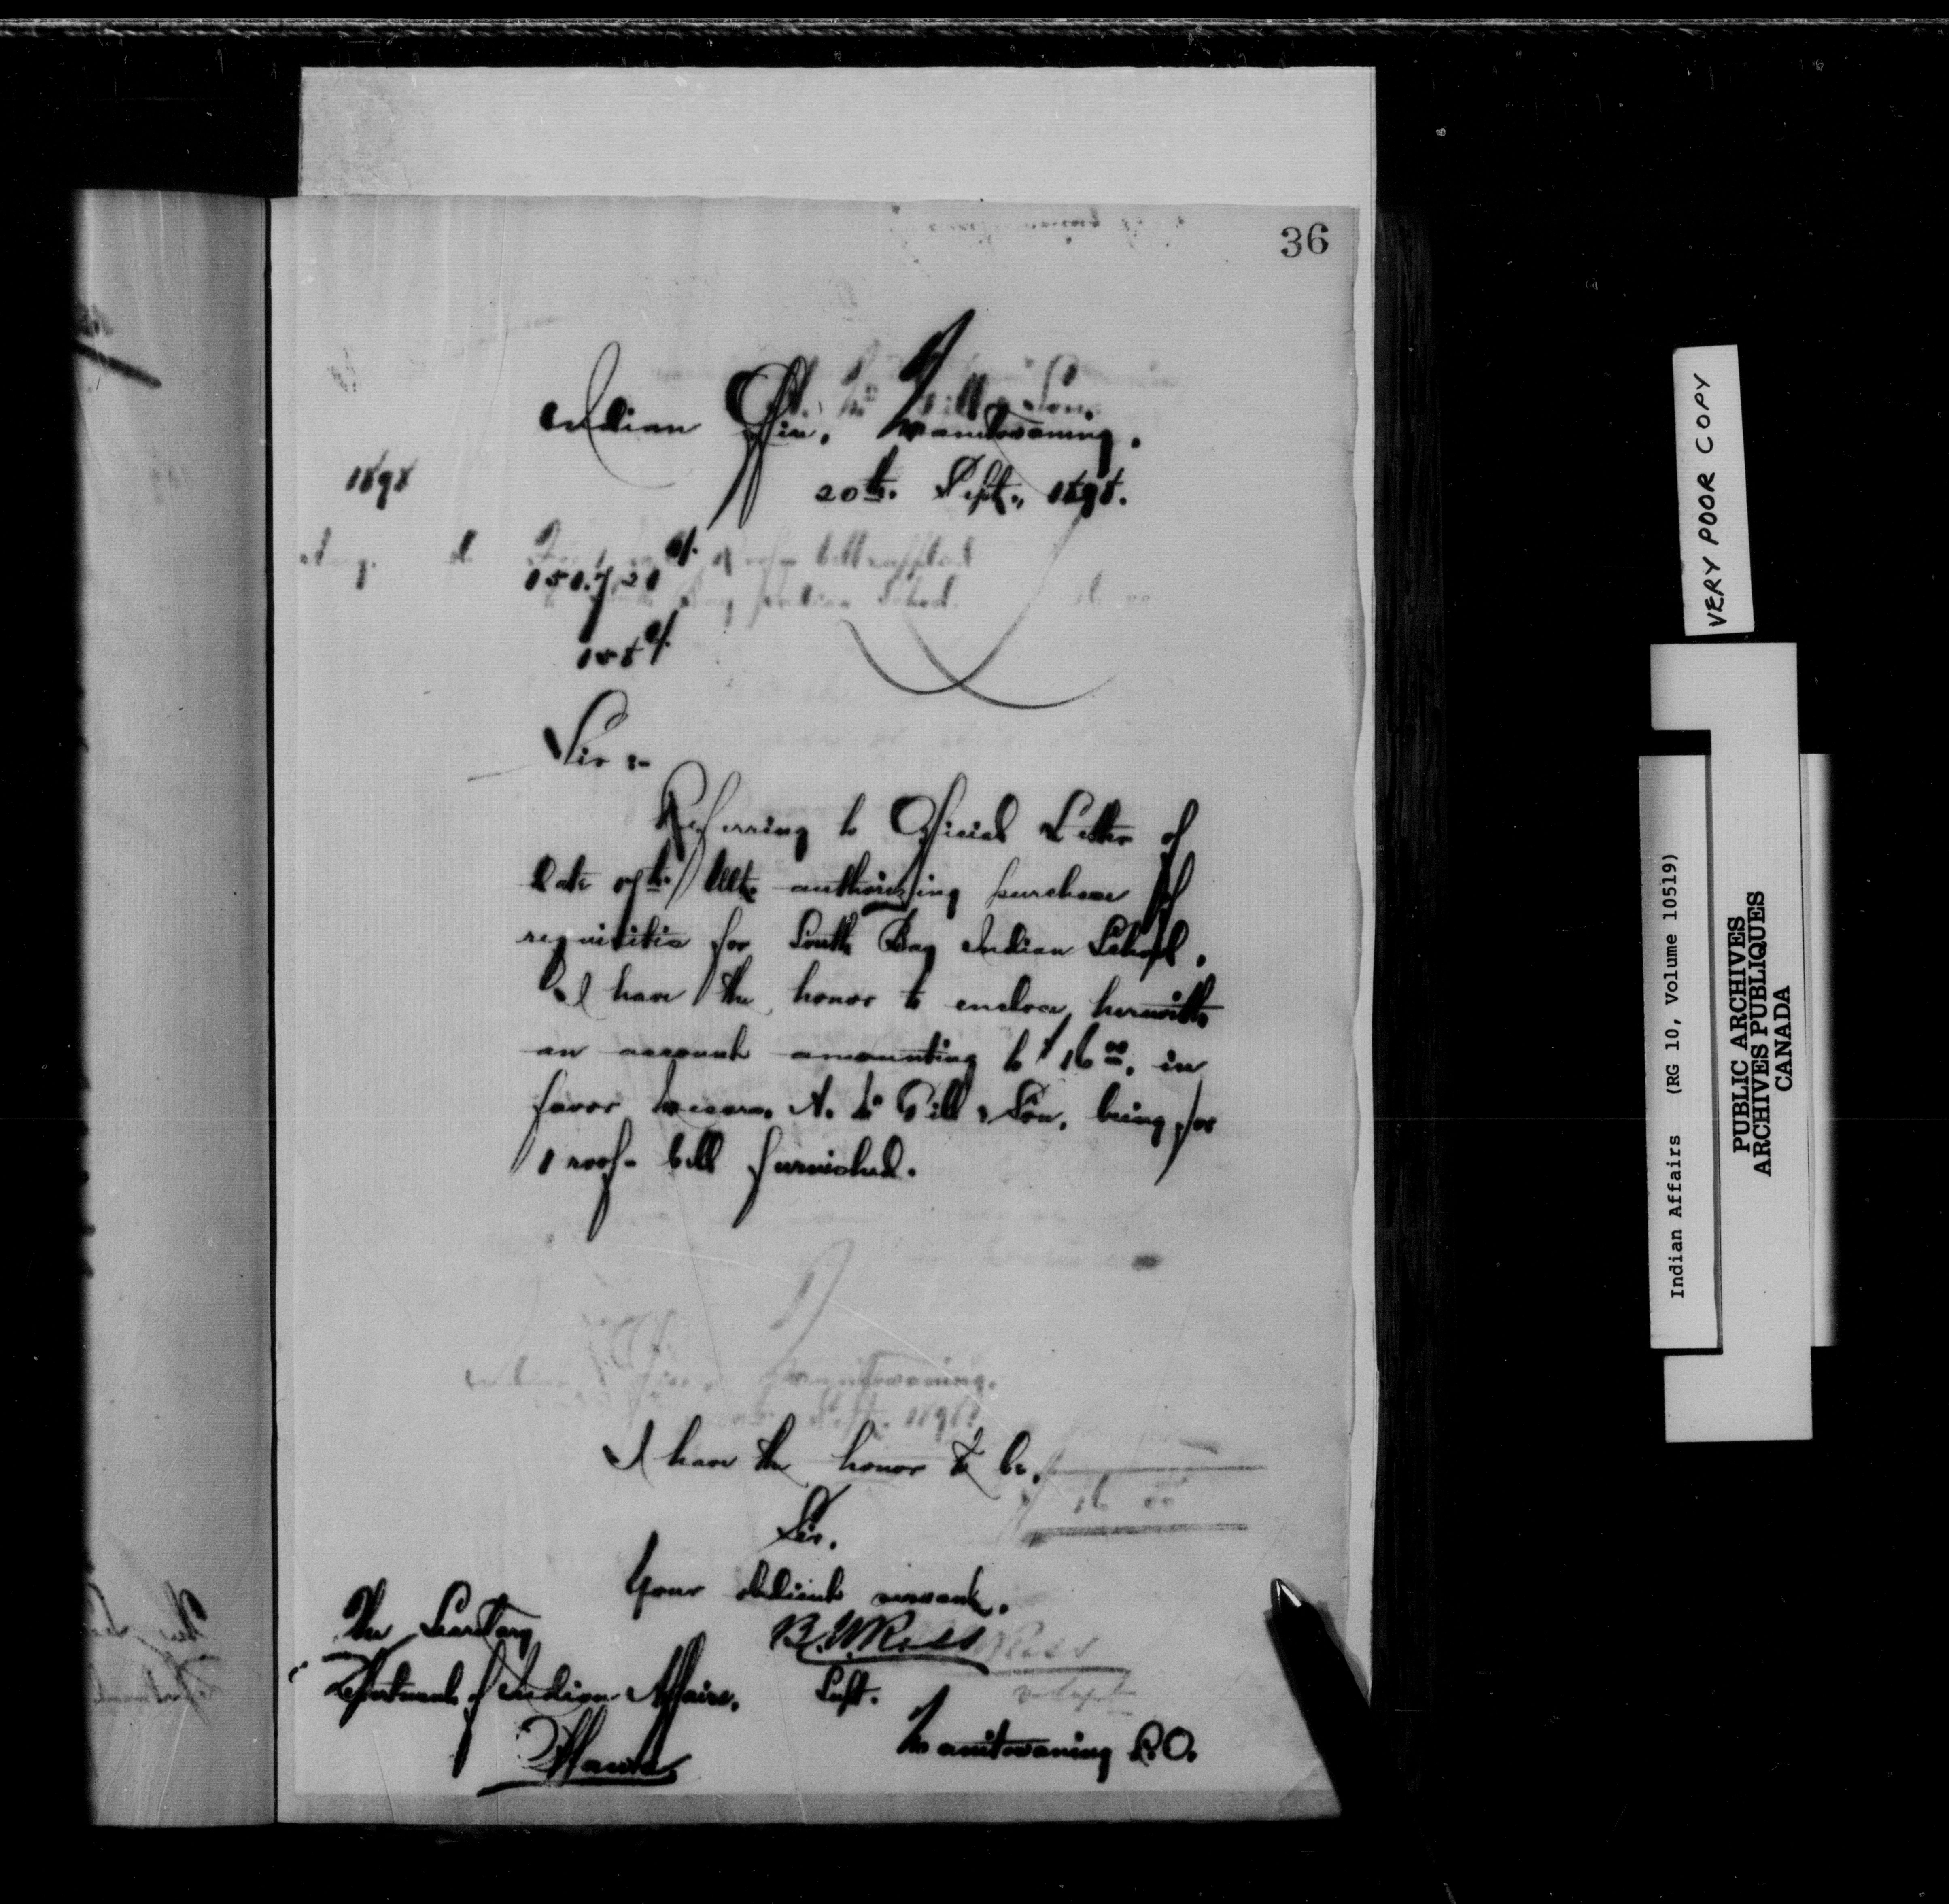 36
Indian Office, Manitowaning.
20th. Sept., 1898.
1898
Sir :-
Referring to Official Letter of
date 17th. Ult. authorizing purchase of
requisites for South Bay Indian School,
I have the honor to enclose herewith
an account amounting to $16.00, in
favor Messrs. A. McGill & Son, being for
1 roof-bell furnished.
I have the honor to be,
Sir,
Your obedient servant,
B.W. Ross
Supt.
Manitowaning P.O.
The Secretary
Department of Indian Affairs,
Ottawa
Manitowaning.
Sept. 1898
16 00
VERY POOR COPY
Indian Affairs (RG 10, Volume 10519)
PUBLIC ARCHIVES
ARCHIVES PUBLIQUES
CANADA